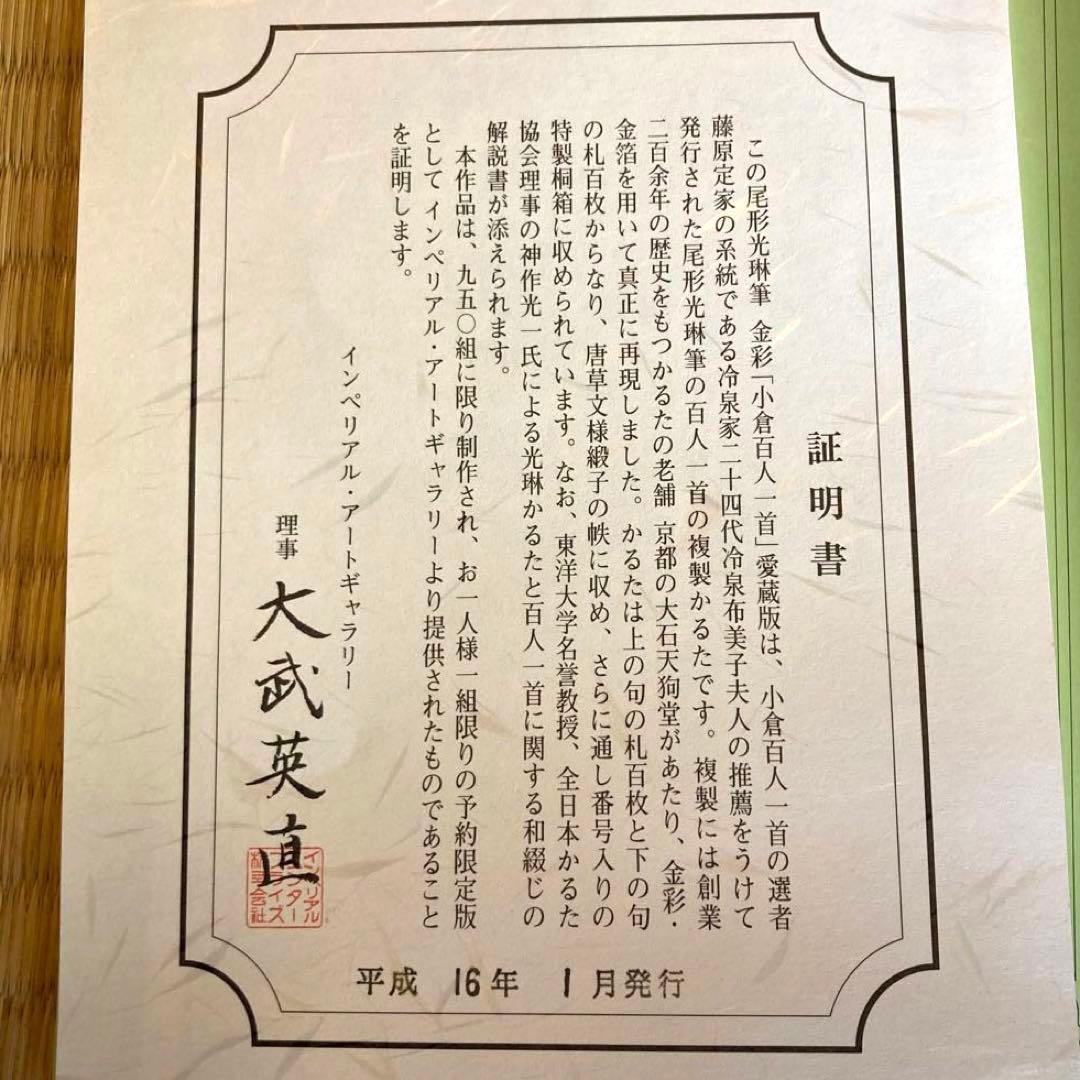 証明書
この尾形光琳筆 金彩「小倉百人一首」愛蔵版は、小倉百人一首の選者
藤原定家の系統である冷泉家二十四代冷泉布美子夫人の推薦をうけて
発行された尾形光琳筆の百人一首の複製かるたです。複製には創業
二百余年の歴史をもつかるたの老舗 京都の大石天狗堂があたり、金彩・
金箔を用いて真正に再現しました。かるたは上の句の札百枚と下の句
の札百枚からなり、唐草文様緞子の帙に収め、さらに通し番号入りの
特製桐箱に収められています。なお、東洋大学名誉教授、全日本かるた
協会理事の神作光一氏による光琳かるたと百人一首に関する和綴じの
解説書が添えられます。
本作品は、九五〇組に限り制作され、お一人様一組限りの予約限定版
としてインペリアル・アートギャラリーより提供されたものであること
を証明します。
インペリアル・アートギャラリー
理事 大武英直
インペリアル
エンター
プライズ
株式会社
平成 16年 1月発行